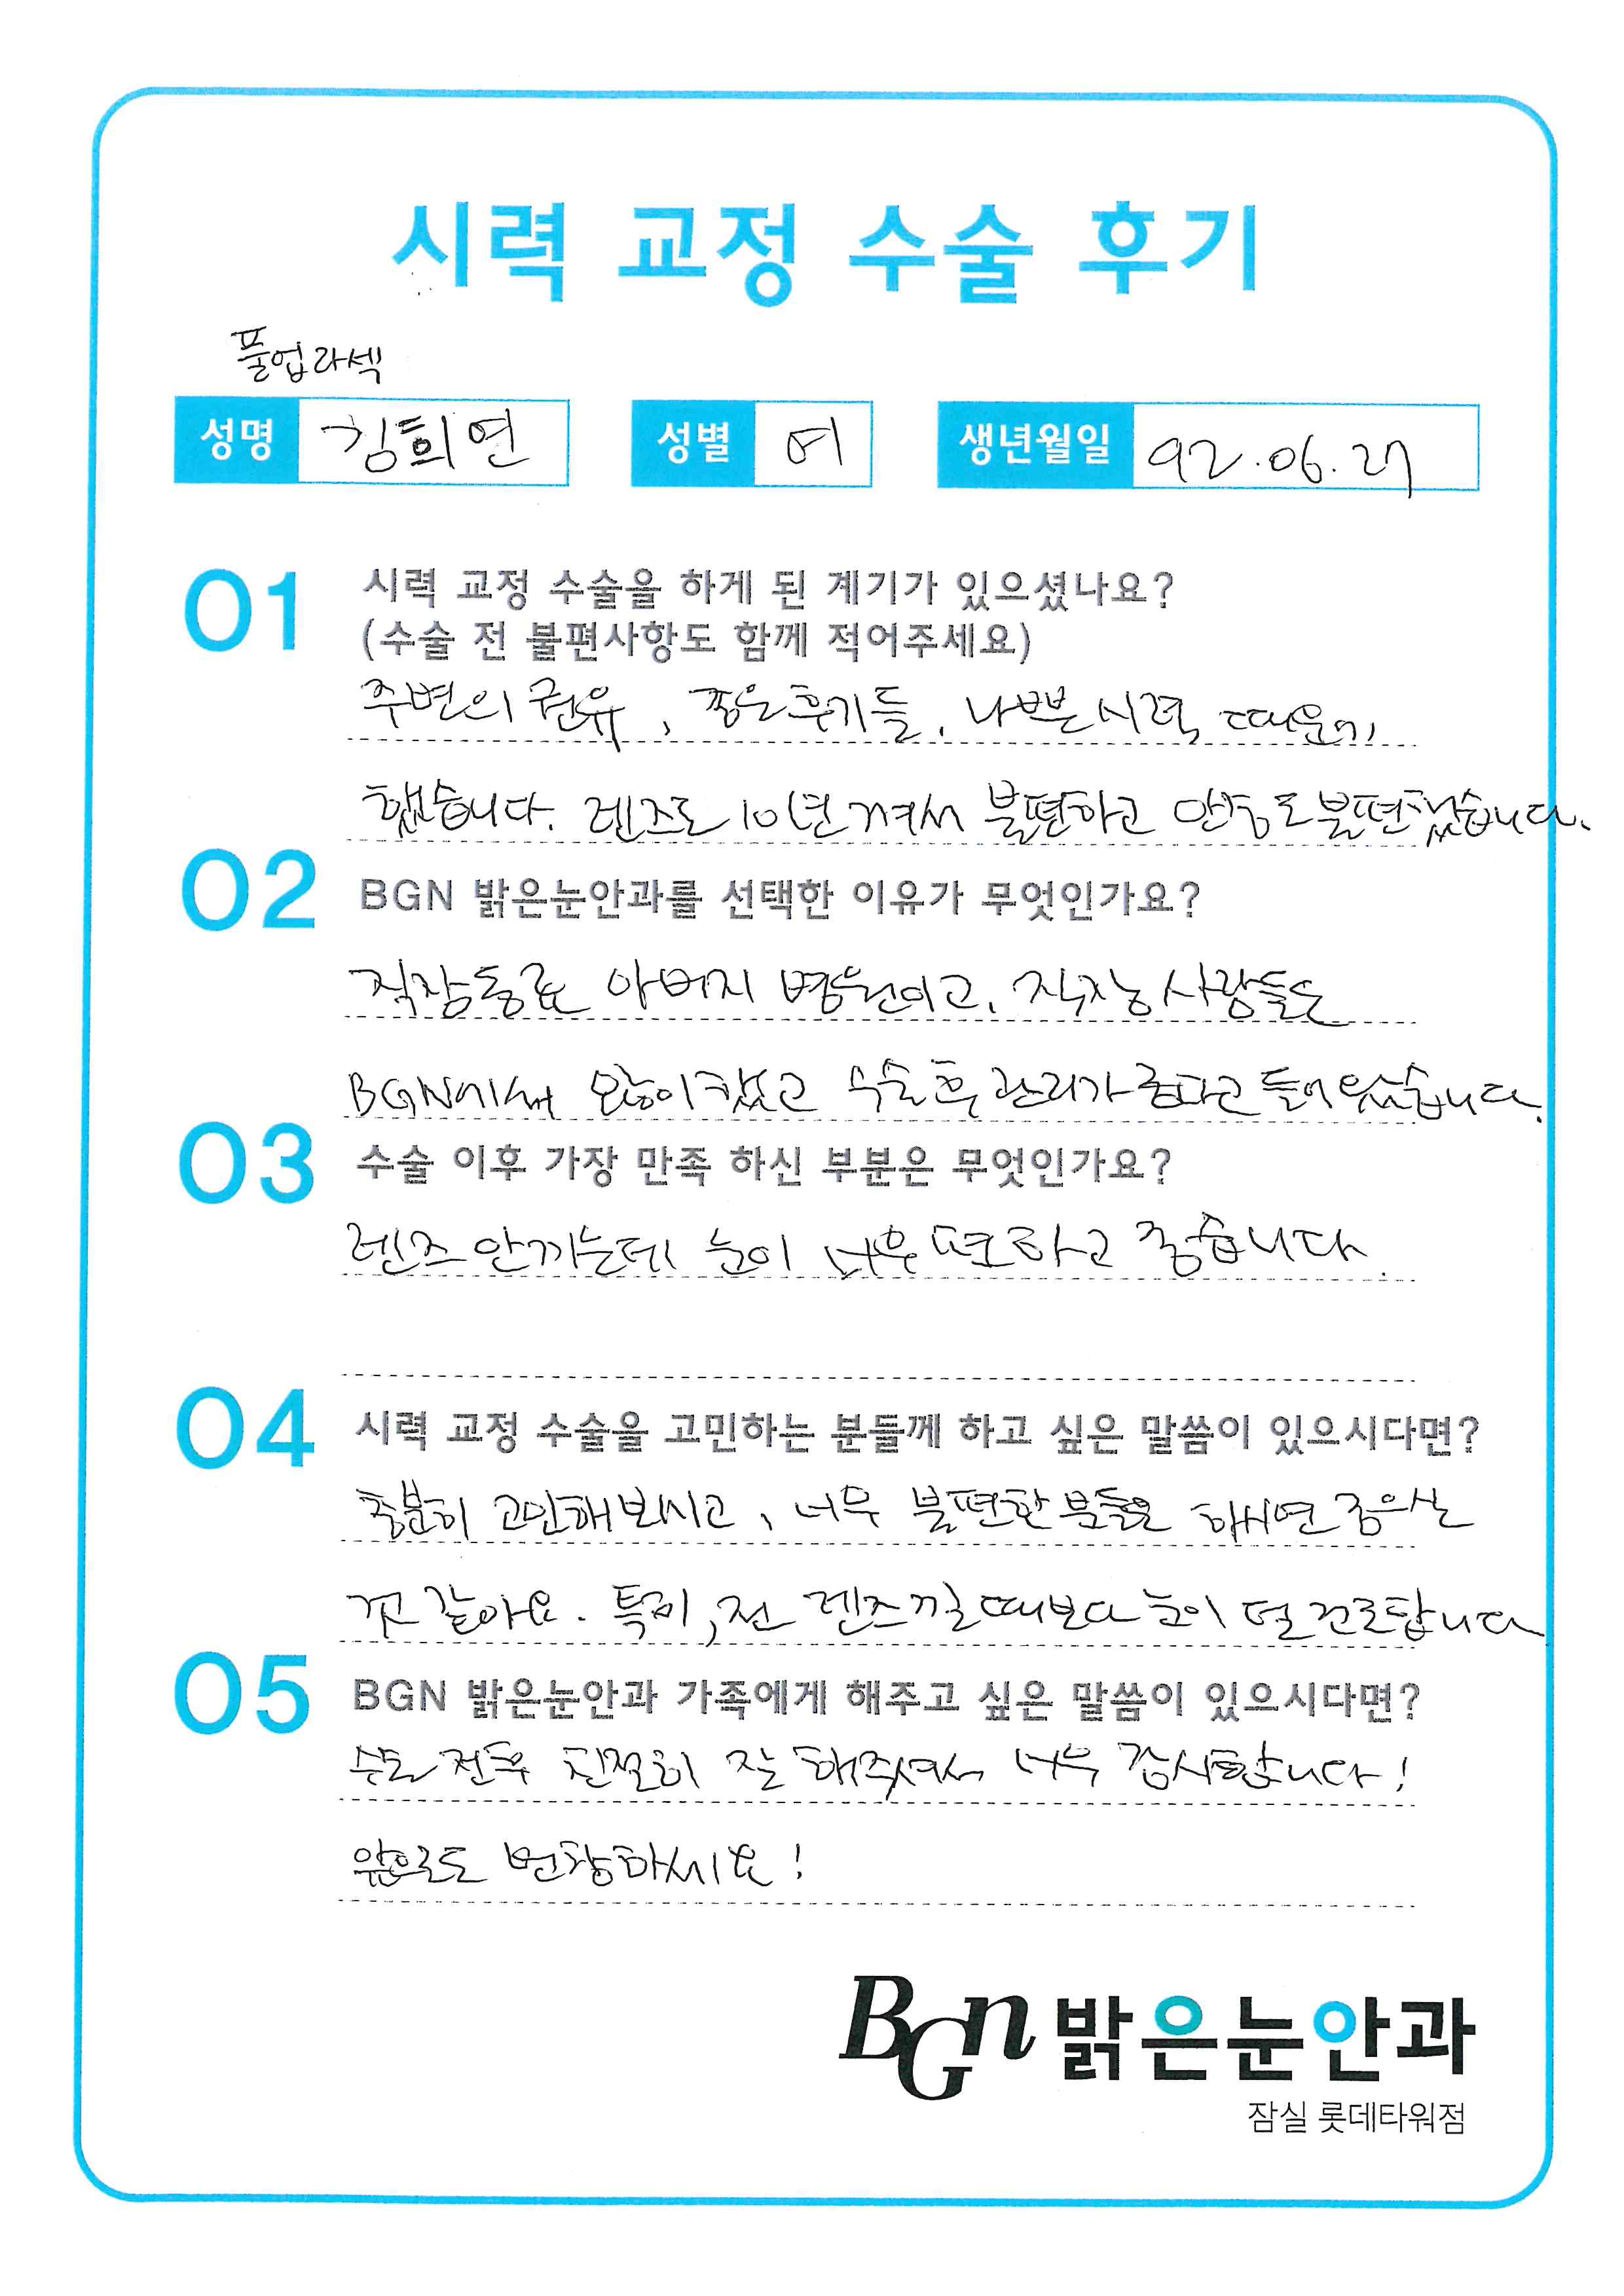 시력 교정 수술 후기
풀업라섹
성명 김희연 성별 여 생년월일 92.06.27
01 시력 교정 수술을 하게 된 계기가 있으셨나요?
(수술 전 불편사항도 함께 적어주세요)
주변의 권유, 좋은후기들, 나쁜시력, 때문에
했습니다. 렌즈도 10년 껴서 불편하고 안경도 불편했습니다.
02 BGN 밝은눈안과를 선택한 이유가 무엇인가요?
직장동료 아버지 병원이고, 직장 사람들도
BGN에서 많이 했고 수술후 관리가 좋다고 들어왔습니다.
03 수술 이후 가장 만족 하신 부분은 무엇인가요?
렌즈 안끼는데 눈이 너무 편하고 좋습니다.
04 시력 교정 수술을 고민하는 분들께 하고 싶은 말씀이 있으시다면?
충분히 고민해보시고, 너무 불편한 분들은 하시면 좋으실
꺼 같아요. 특히, 전 렌즈낄때보다 눈이 덜 건조합니다
05 BGN 밝은눈안과 가족에게 해주고 싶은 말씀이 있으시다면?
수술 전후 친절히 잘 해주셔서 너무 감사합니다!
앞으로도 번창하세요!
BGn 밝은눈안과
잠실 롯데타워점